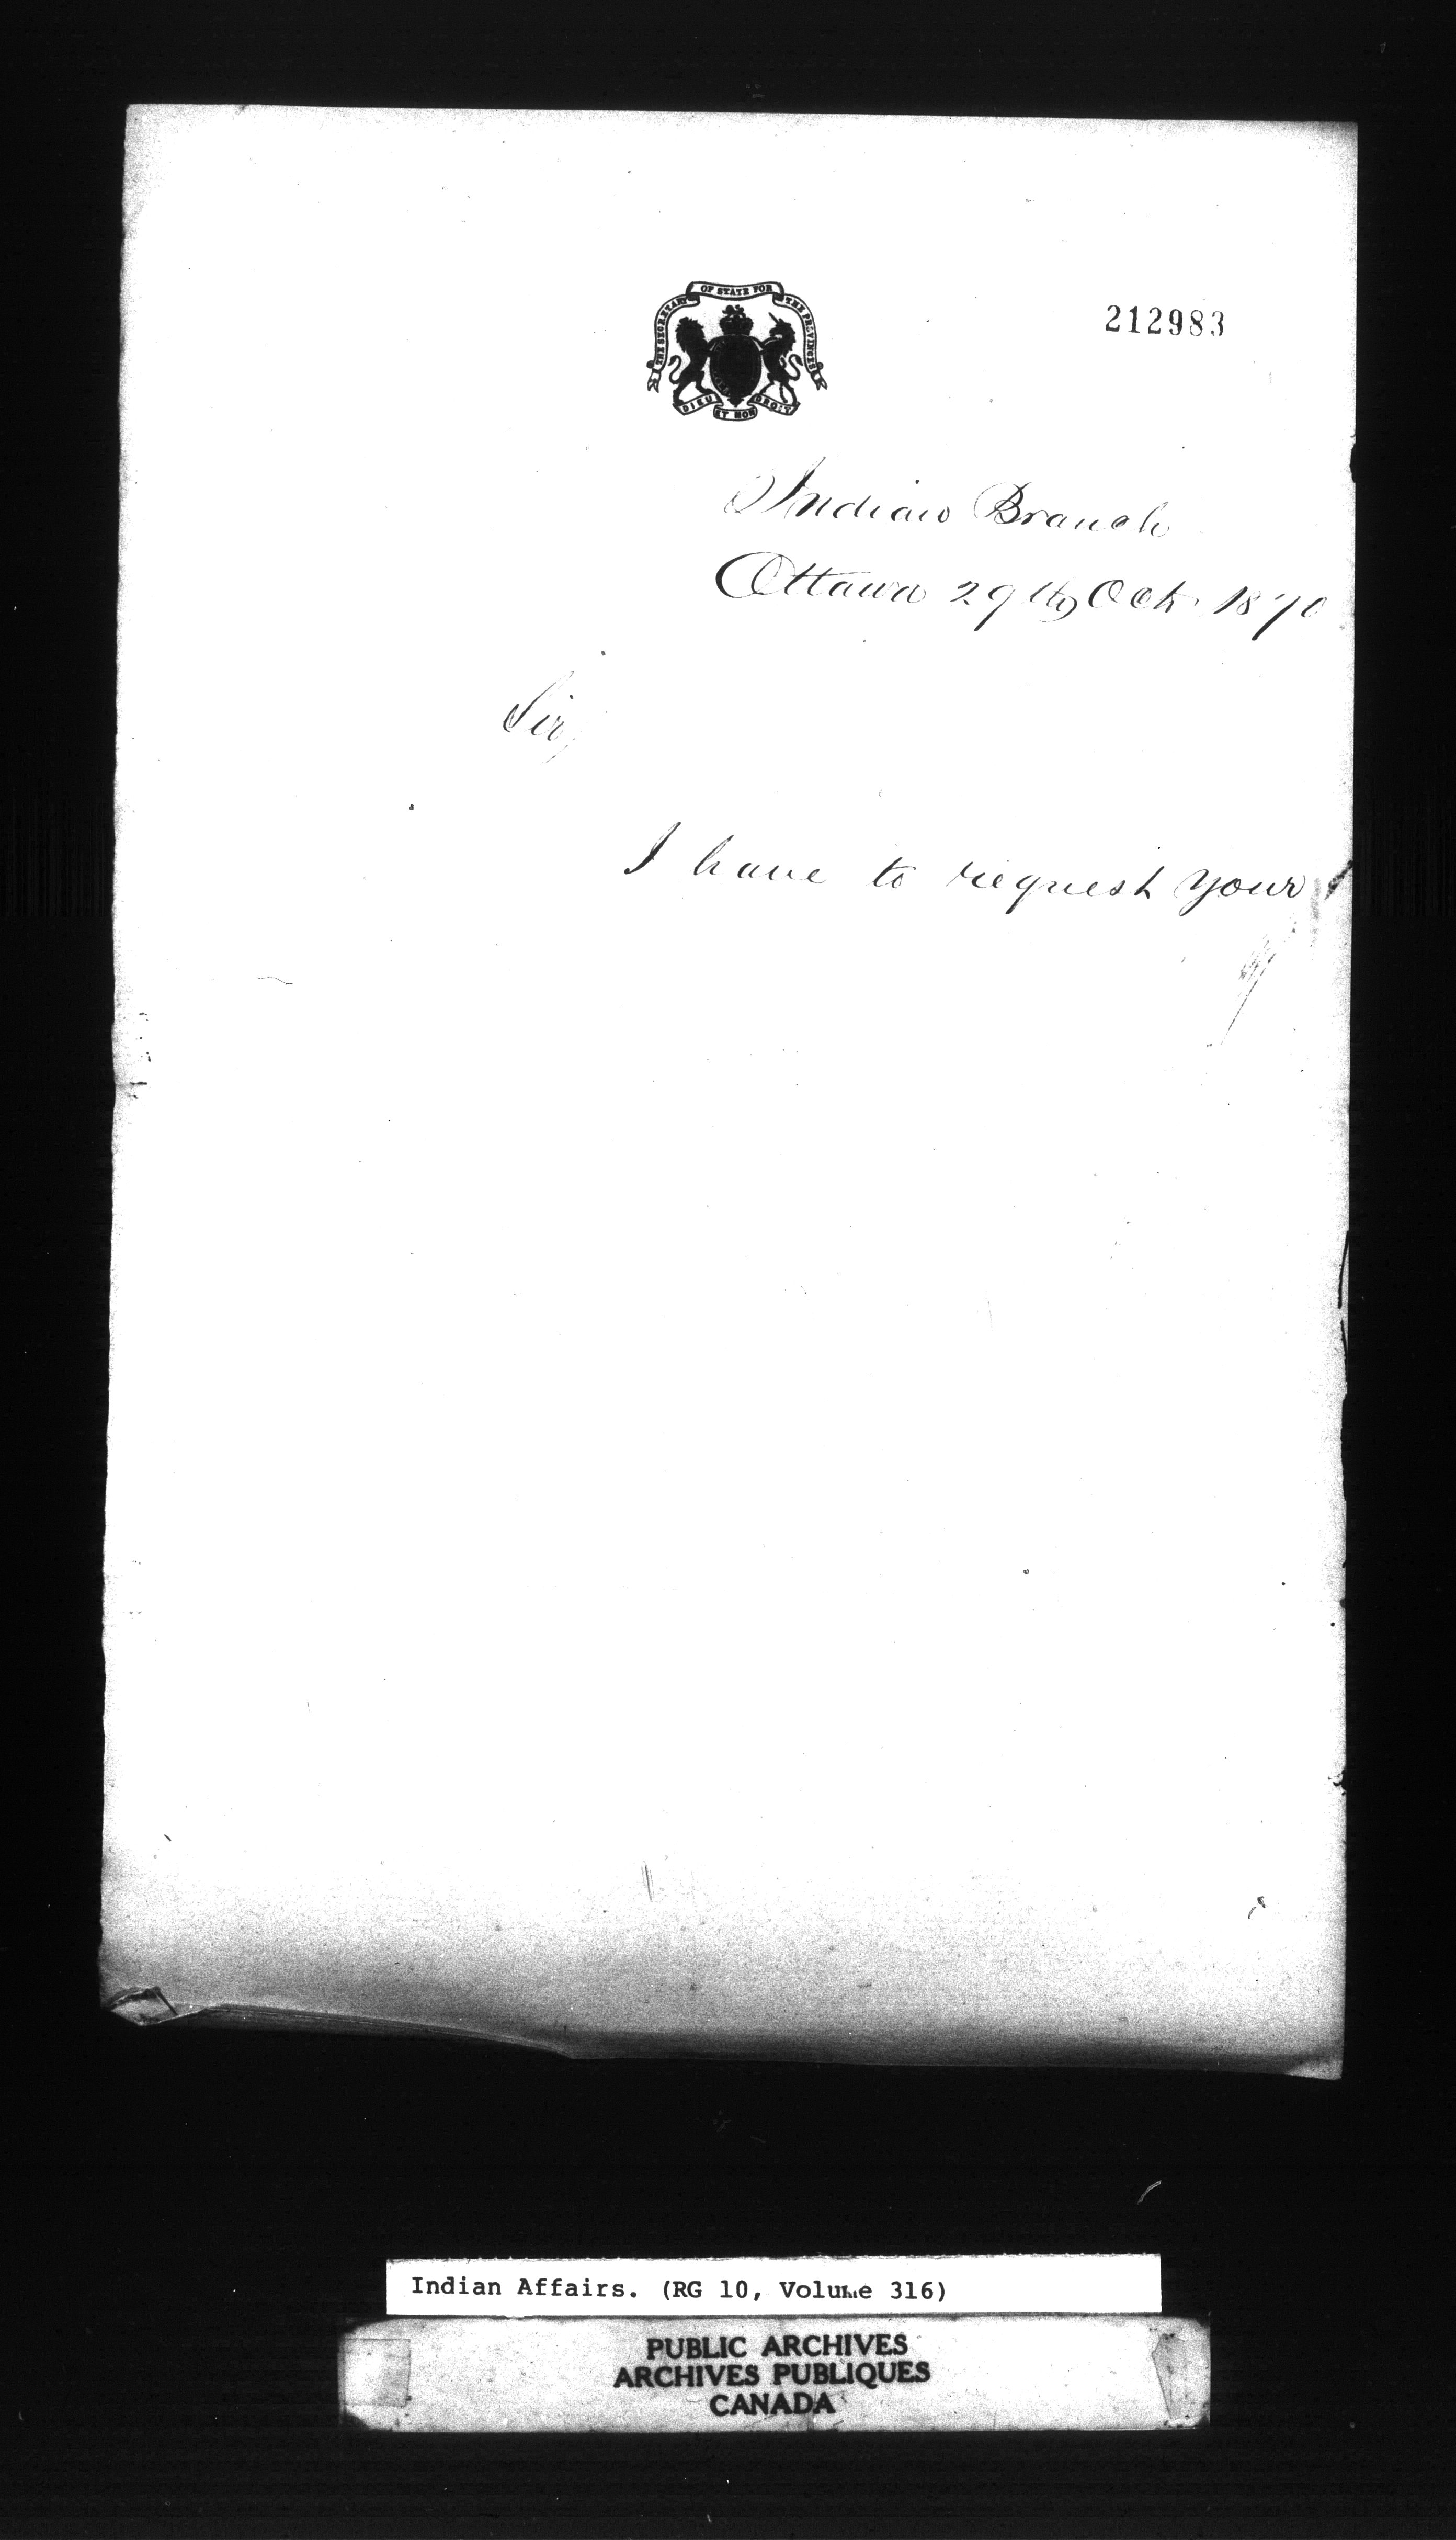 THE SECRETARY OF STATE FOR THE PROVINCES
DIEU ET MON DROIT
212983
Indian Branch
Ottawa 29th Oct. 1870
Sir,
I have to request your
Indian Affairs. (RG 10, Volume 316)
PUBLIC ARCHIVES
ARCHIVES PUBLIQUES
CANADA